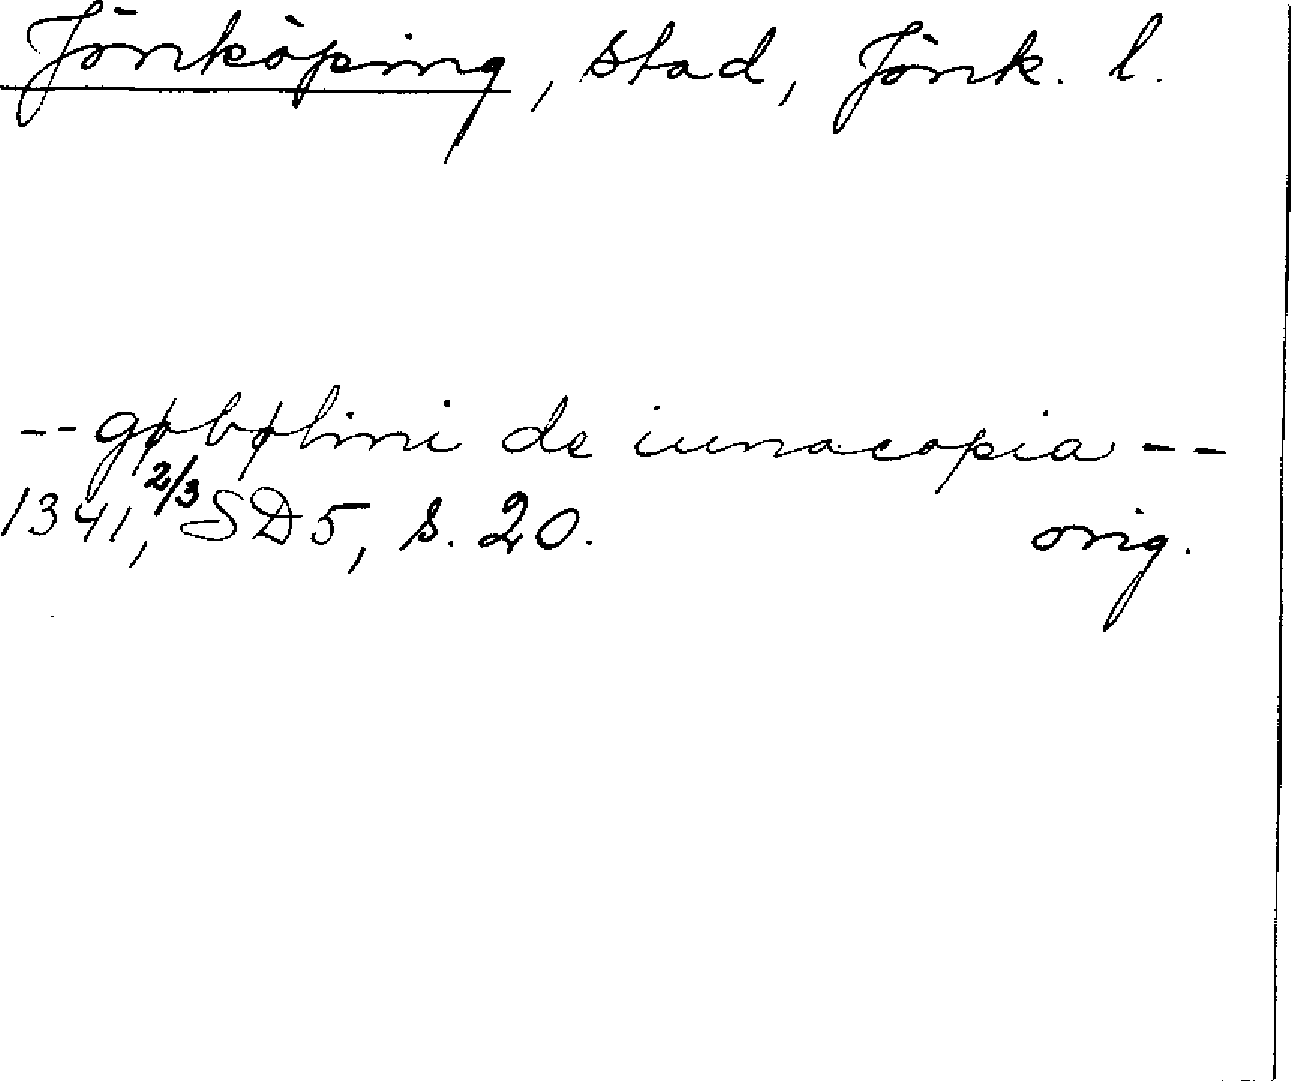 Jönköping, stad, Jönk. l.
-- gøbølini de iunacopia --
1341, 2/3 SD5, s. 20. orig.